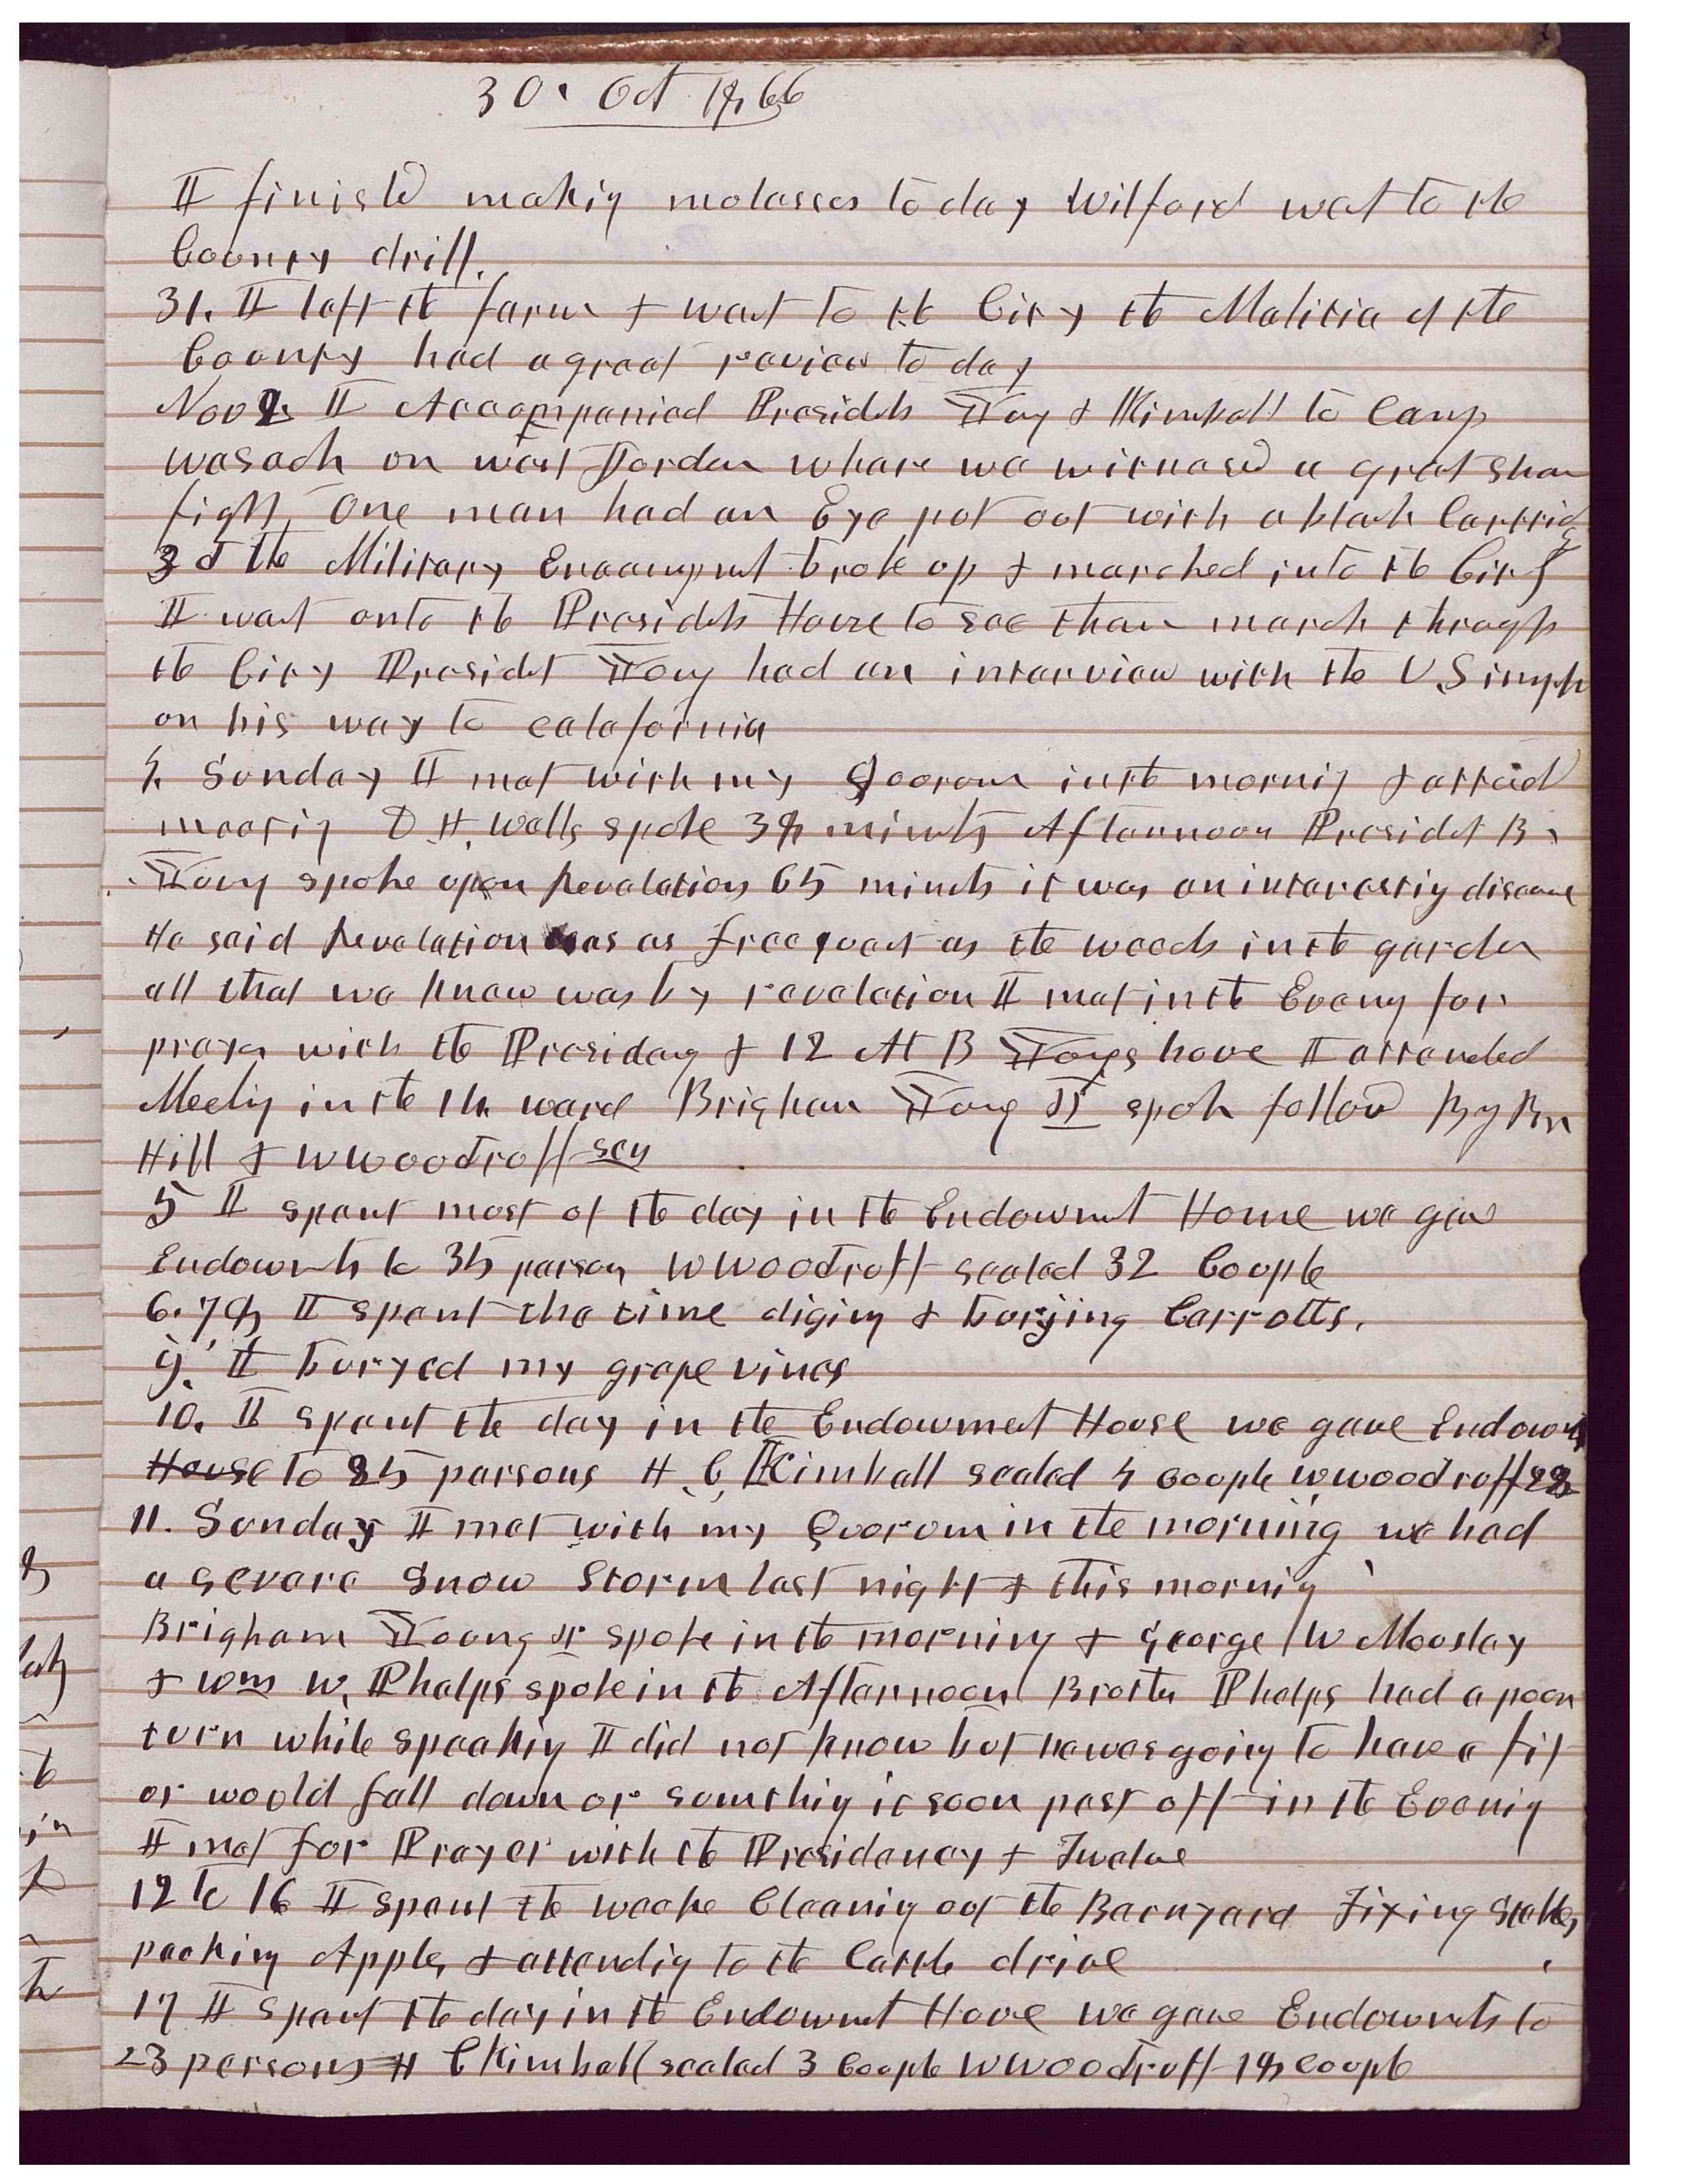 30. Oct 1866
I finishd making molasses to day Wilford went to the
County drill.
31. I left the farm & went to the City the Malitia of the
County had a great review to day
Nov 2 I Accompanied Presidets Young & Kimball to Camp
wasach on west Jordan whare we witnesed a great sham
fight, One man had an Eye put out with a blank Cartridg
3d The Military Encampmet broke up & marched into the City
I went onto the Presidets House to see them march through
the City Presidet Young had an interview with the U.S
on his way to calafornia
4. Sunday I met with my Quorum in the mornig & attend
meetig D. H. Wells spoke 38 minuts Afternoon Presidet B.
Young spoke upon Revelation 65 minuts it was an interestig discours
He said Revelation was as freequent as the weeds in the garden
all that we knew was by revelation I met in the Evenng for
prayer with the Presidency & 12 At B Youngs house I attended
Meetig in the 14 ward Brigham Young II spok followd By Br
Hill & W Woodruff sen
5 I spent most of the day in the Endowmet House we gave
Endowmts to 35 person W Woodruff sealed 32 Couple
6. 7 8 I spent the time diging & burying Carrotts.
9. I buryed my grape vines
10. I spent the day in the Endowmet House we gave Endowmts
House to 25 persons H. C. Kimball sealed 4 couple W Woodruff 22
11. Sunday I met with my Quorum in the morning we had
a severe Snow Storm last night & this mornig
Brigham Young Jr spoke in the morning & George W Mousley
& Wm W. Phelps spoke in the Afternoon Brother Phelps had a poor
turn while speaking I did not know but he was going to have a fit
or would fall down or somthig it soon past off in the Evenig
I met for Prayer with the Presidency & Twelve
12 to 16 I spent the weeke Cleanig out the Barnyard Fixing Stables
packing Apples & attendig to the Cattle drive
17 I spent the day in the Endowmt House we gave Endowmts to
23 persons H C Kimball sealed 3 Couple W Woodruff 18 couple